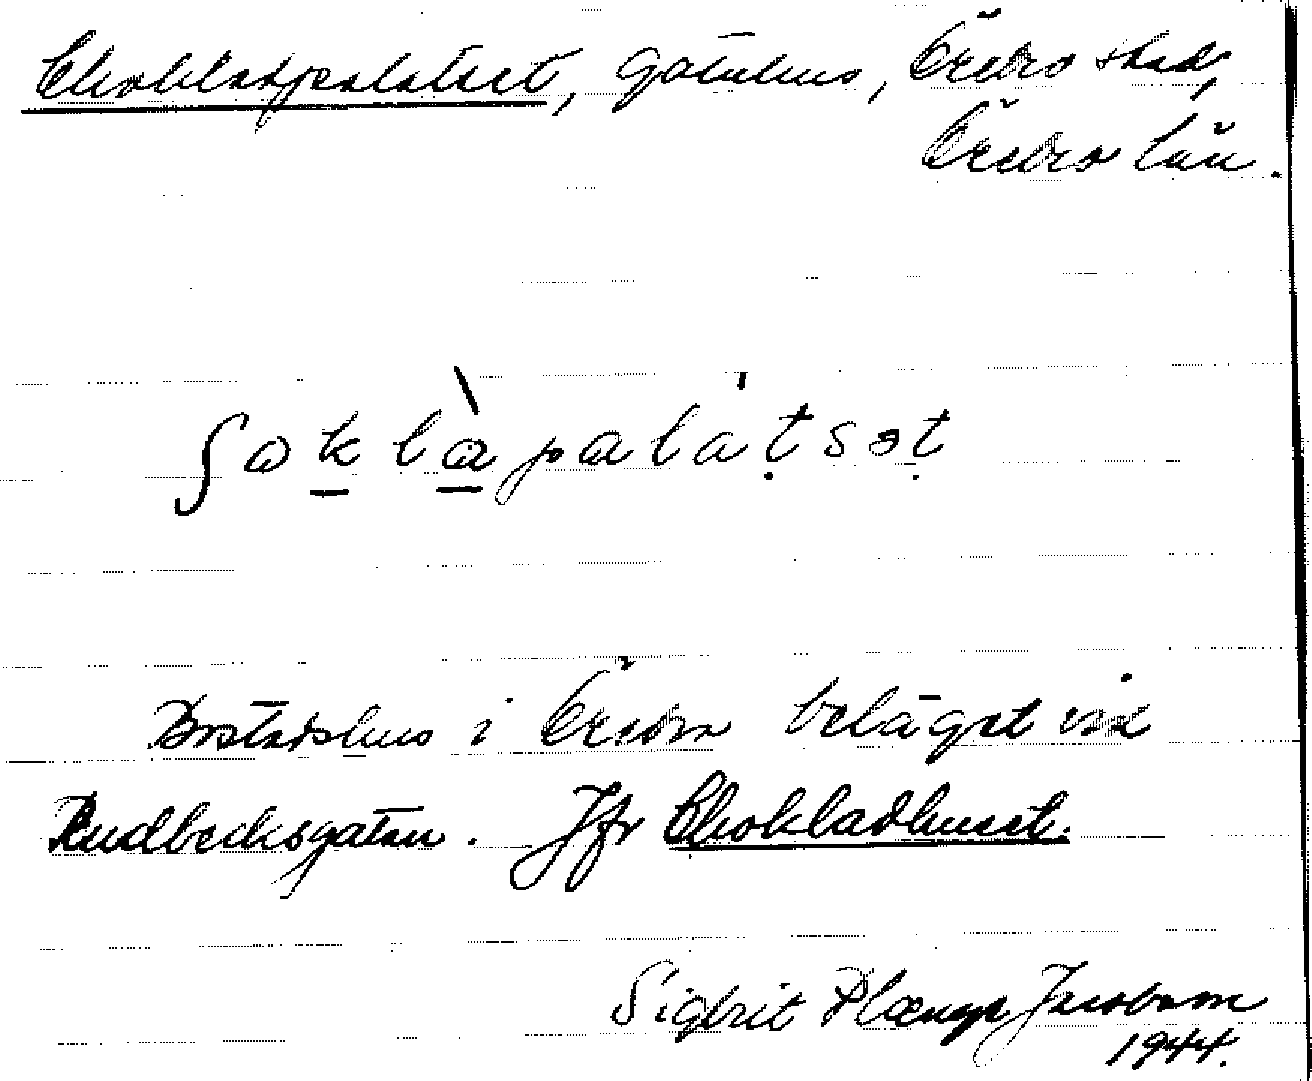 Chokladpalatset, gatuhus, Örebro stad,
Örebro län.
ʃɑklàpalátsət
Bostadshus i Örebro beläget vid
Rudbecksgatan. Jfr Chokladhuset.
Sigbrit Plænge Jacobson
1944.